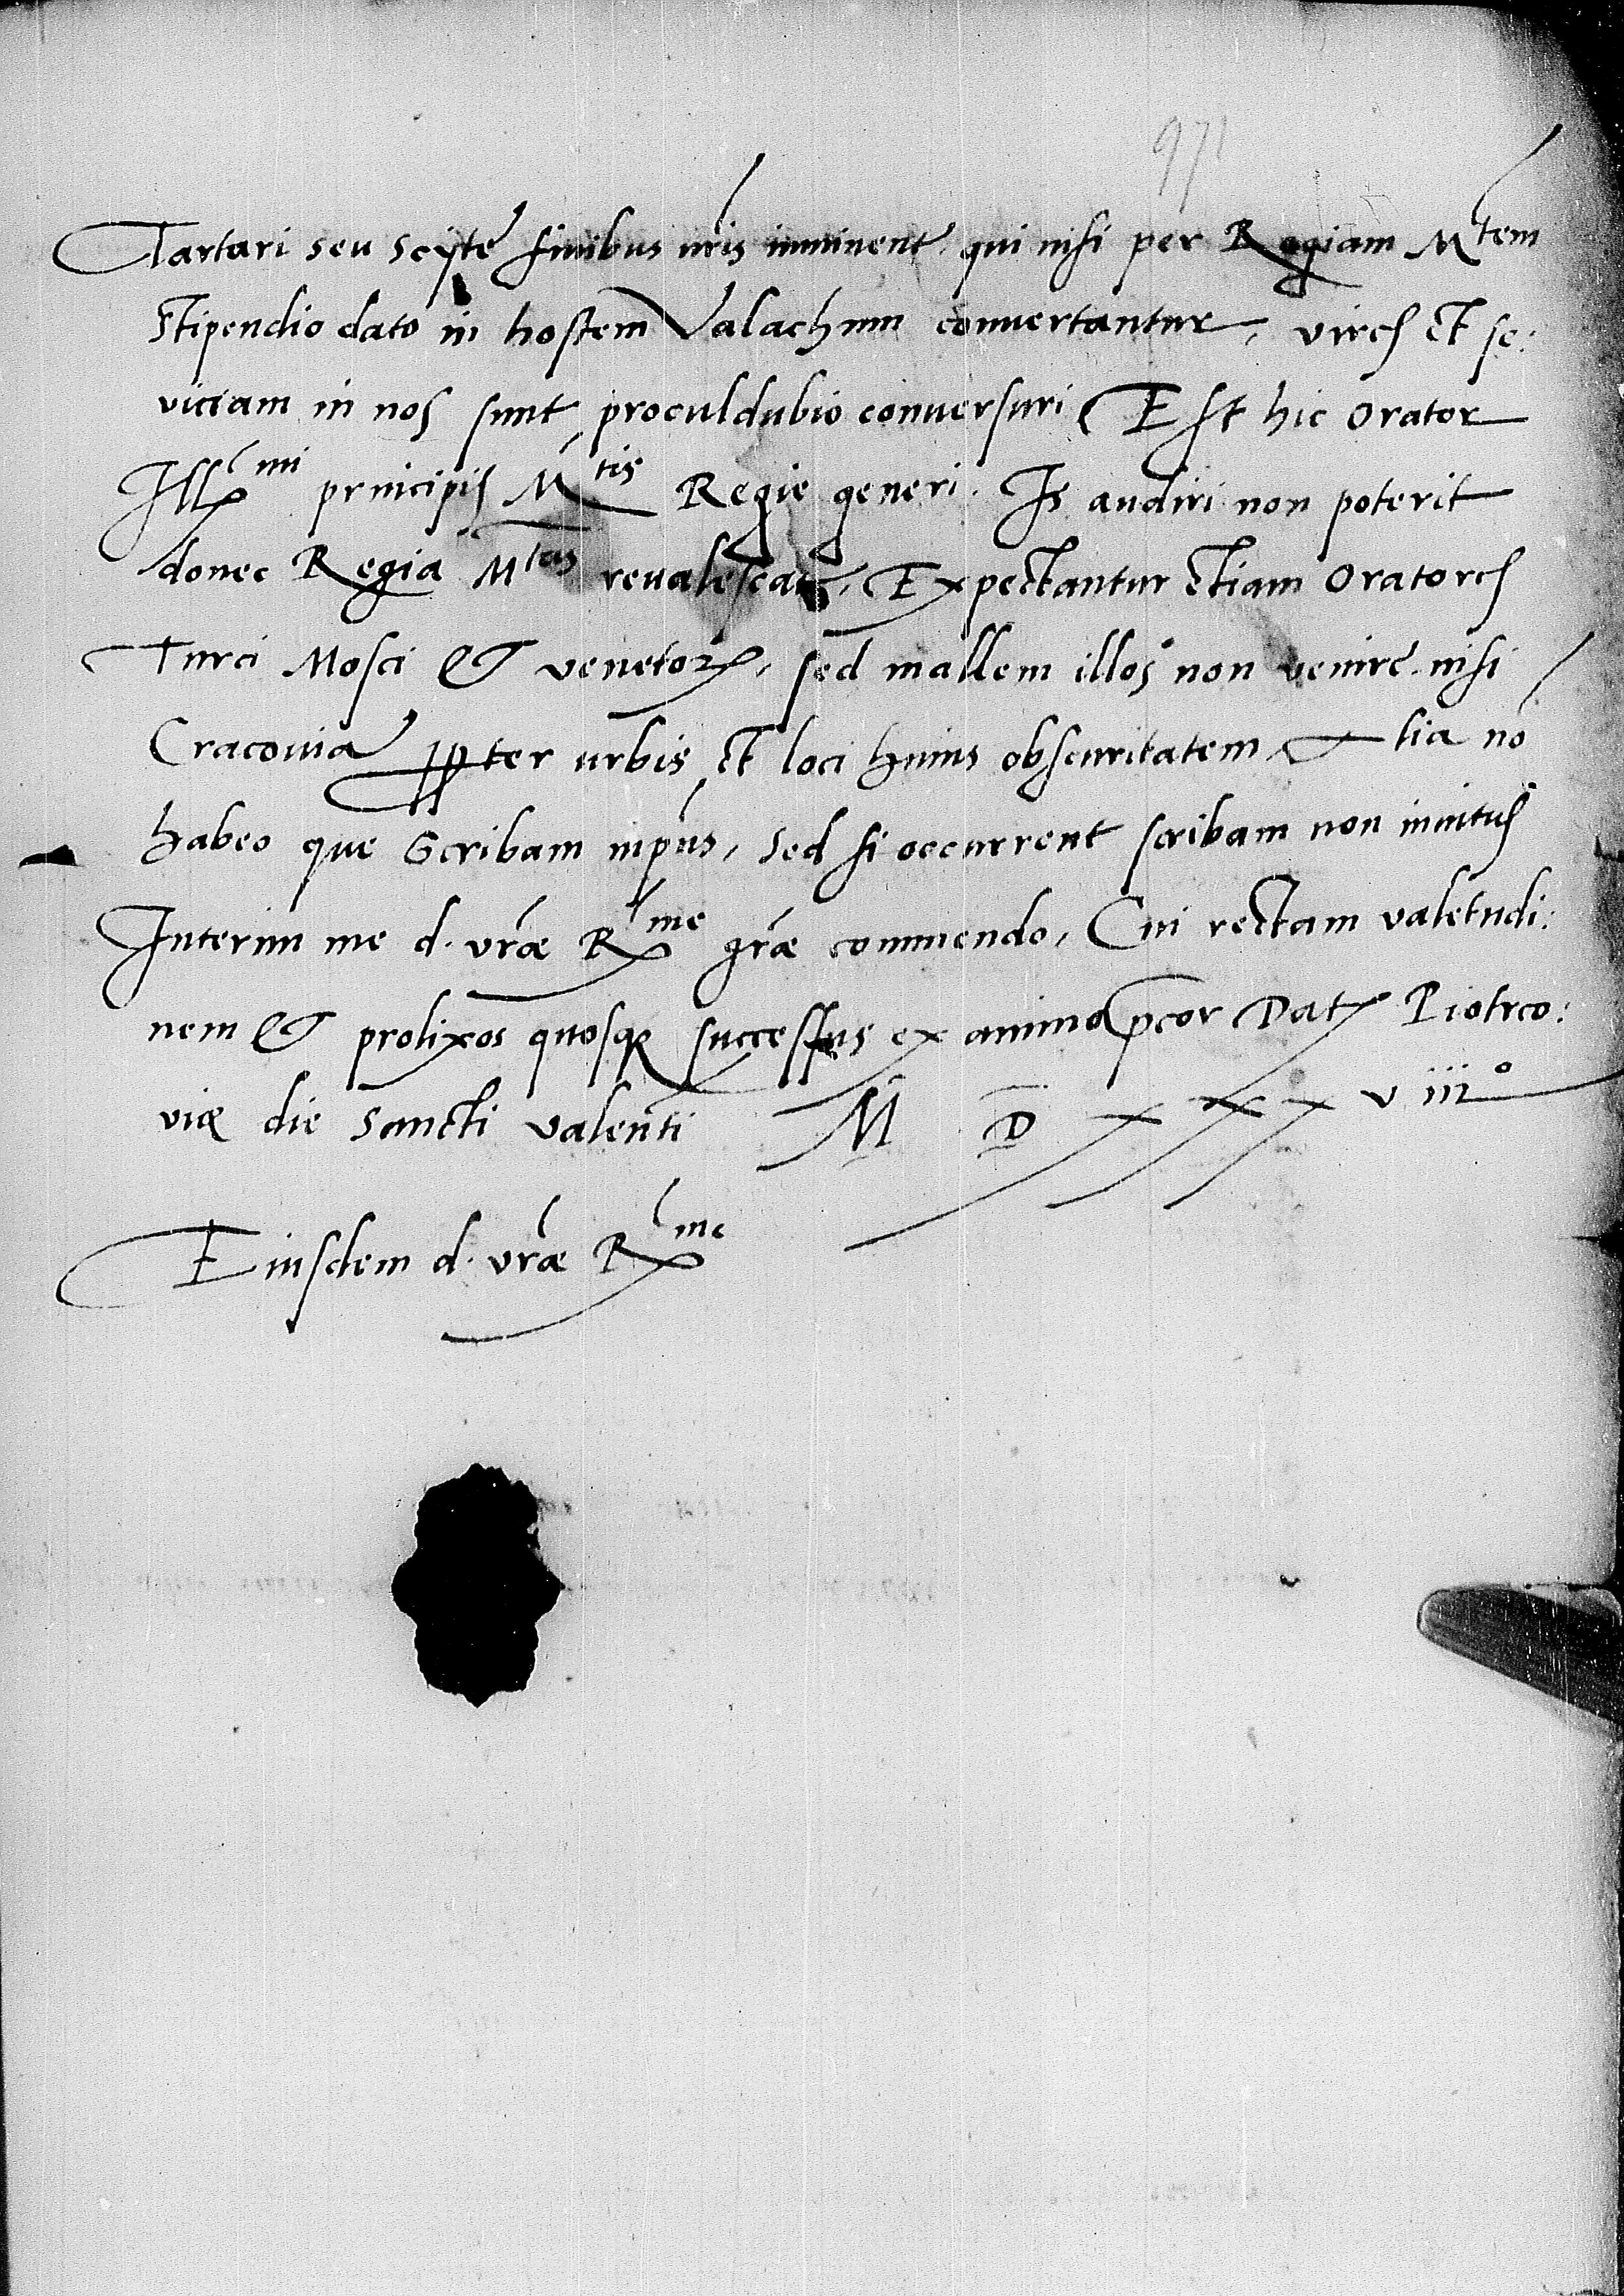 971
Tartari seu Scÿte finibus nr̃is imminent. qui nisi per Regiam Mtem
Stipendio dato in hostem Valachum conuertantur, vires et se:
viciam in nos sunt proculdubio conuersuri (Est hic Orator
Illmi principis Mtis Regie generi. Is audiri non poterit
donec Regia Mtas reualescat, Expectantur etiam Oratores
Turci Mosci & venetoꝝ, sed mallem illos non venire nisi
Cracouiã ꝓpter urbis et loci huius obscuritatem,
habeo que Scribam inp̃us, sed si occurrent scribam non inuitus
Interim me d. vr̃æ Rme gr̃æ commendo, Cui rectam valetudi:
nem & prolixos quosqꝫ successus ex animo p̃cor Datꝫ Piotrco:
viæ die Sancti valenti M D x x x v iiiº
Eiusdem d. vr̃æ Rme